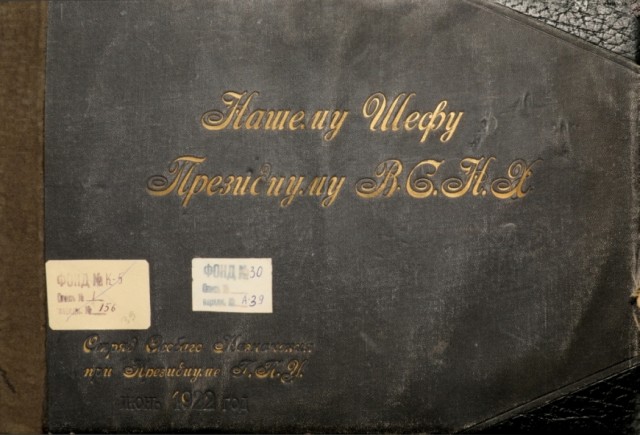 Нашему Шефу
Президиуму В.С.Н.Х
ФОНД № К-5
Опись № 1
№ 156
ФОНД № 30
Опись №
А-39
Отряд Особаго Назначения
при Президиуме Г.П.У.
Июнь 1922 год